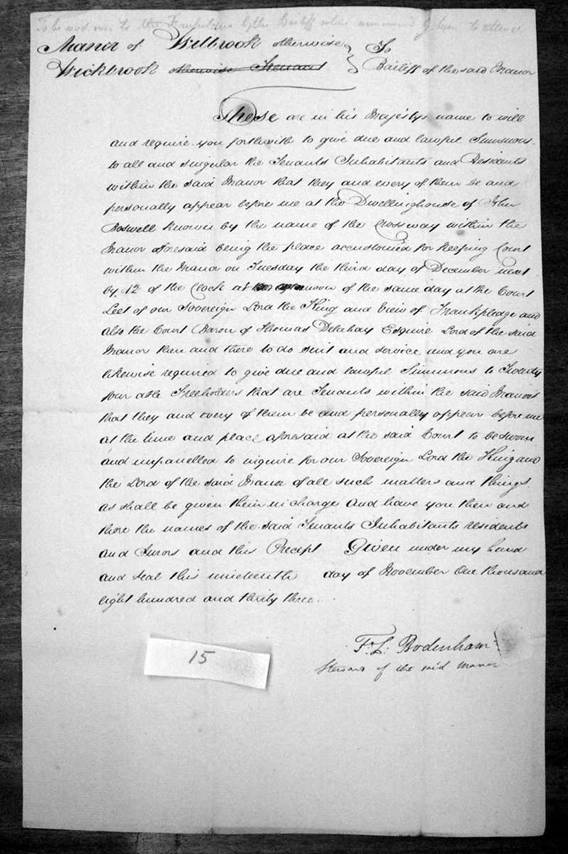 To be
to the
by the Bailiff when summoned
to attend
Manor of Wilbrook otherwise } To
Wickbrook otherwise } Bailiff of the said Manor
These are in his Majestys name to will
and require you forthwith to give due and lawful Summons
to all and singular the Tenants Inhabitants and Residents
within the said Manor that they and every of them be and
personally appear before me at the Dwellinghouse of John
Boswell known by the name of the Crossway within the
Manor aforesaid being the place accustomed for keeping Court
within the Manor on Tuesday the third day of December next
by 12 of the Clock at noon of the same day at the Court
Leet of our Sovereign Lord the King and View of Frankpledge and
also the Court Baron of Thomas Delahay Esquire Lord of the said
Manor then and there to do suit and service and you are
likewise required to give due and lawful Summons to Twenty
four able Freeholders that are Tenants within the said Manor
that they and every of them be and personally appear before me
at the time and place aforesaid at the said Court to be sworn
and impanelled to inquire for our Sovereign Lord the King and
the Lord of the said Manor of all such matters and things
as shall be given them in charge And have you then and
there the names of the said Tenants Inhabitants residents
and Jurors and this Precept Given under my hand
and seal this nineteenth day of November One thousand
eight hundred and thirty three.
F. L. Bodenham
Steward of the said Manor
15